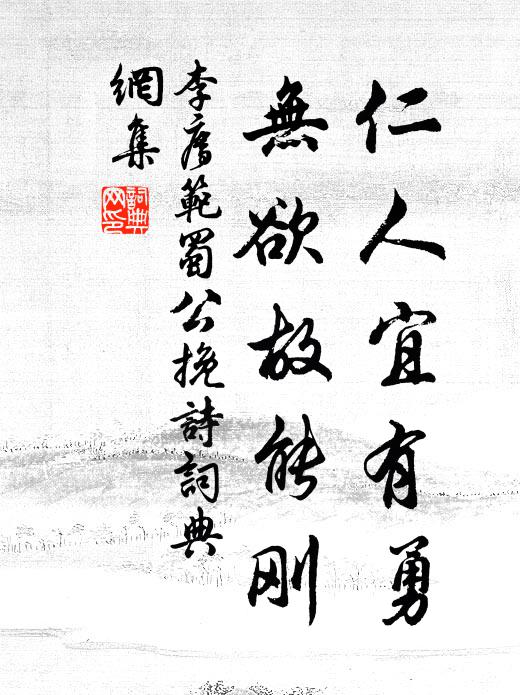 仁人宜有勇
無欲故能刚
李廌範蜀公挽詩詞典
網集
詞典网印